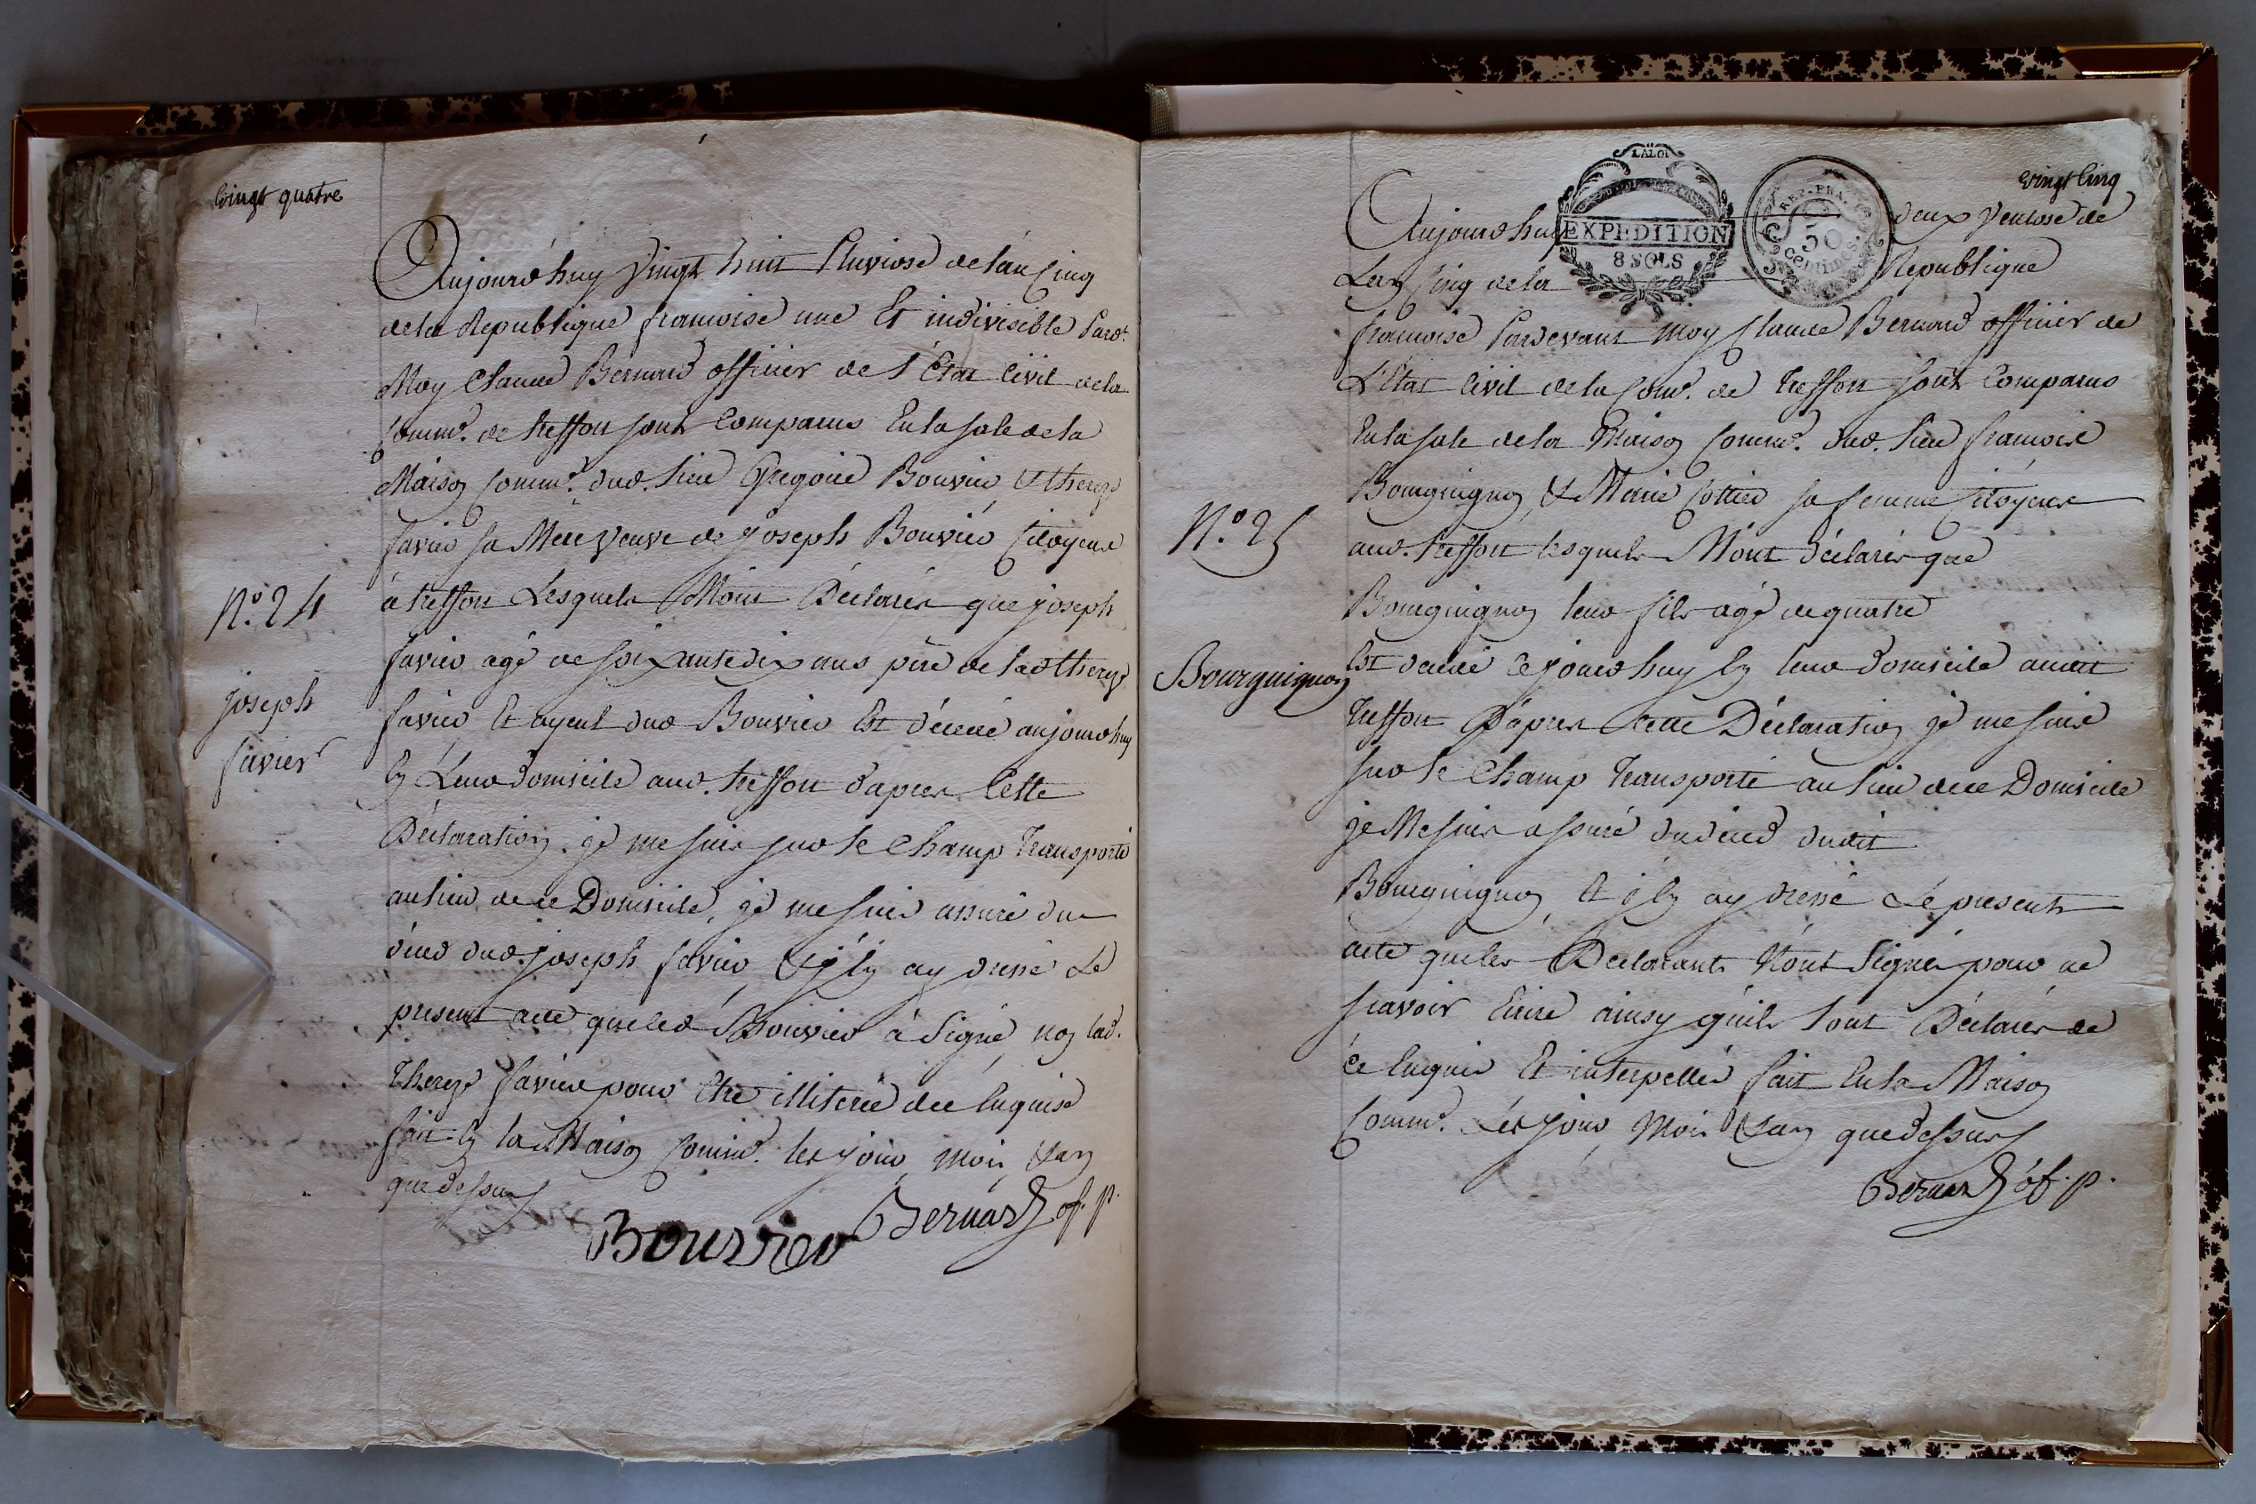 vingt quatre
Aujourd'huy vingt huit Pluviose de l'an Cinq
de la Republique francoise une Et indivisible Pard.t
Moy Claude Bernard officier de l'Etat Civil de la
Comm.e de treffort sont Comparus En la sale de la
Maison Comm.e dud. lieu Gregoire Bouvier & thereze
favier sa Mere veuve de joseph Bouvier Citoyens
à treffort Lesquels M'ont Déclarés que joseph
favier agé de soixante dix ans père de lad thereze
favier Et ayeul dud Bouvier Est décédé aujourdhuy
En Leur domicile aud. treffort d'apres Cette
Déclaration je me suis sur le Champ Transporté
au lieu de ce Domicile, je me suis assuré du
déces dud. joseph favier & j'En ay dressé Le
present acte que led Bouvier à Signé non lad.
Thereze favier pour Etre illiterée de ce Enquise
fait En la Maison Comm.e les jour Mois & an
que dessus
Bouvier Bernard of. p.
N.o 24
joseph
favier
vingt Cinq
LA LOI
EXPEDITION
8 SOLS
REP. FRA.
50
centimes
Aujourdhuy deux Ventose de
L'an Cinq de la Republique
francoise Pardevant Moy Claude Bernard officier de
L'Etat Civil de la Com.e de treffort sont Comparus
En la sale de la Maison Comm.e dud. lieu francois
Bourguignon & Marie Cottier sa femme Citoyens
aud. treffort lesquels M'ont déclarés que
Bourguignon leur fils agé de quatre
Est décédé Cejourdhuy En leur domicile audit
treffort D'après Cette Déclaration je me suis
sur le Champ Transporté au lieu de ce Domicile
je Me suis assuré du déces dudit
Bourguignon Et j'En ay dressé Le present
acte que les Declarants N'ont Signés pour ne
scavoir Ecrire ainsy qu'ils l'ont Déclarés de
ce Enquis Et interpellés fait En la Maison
Comm.e Les jour Mois & an que dessus
Bernard of. p.
N.o 25
Bourguignon